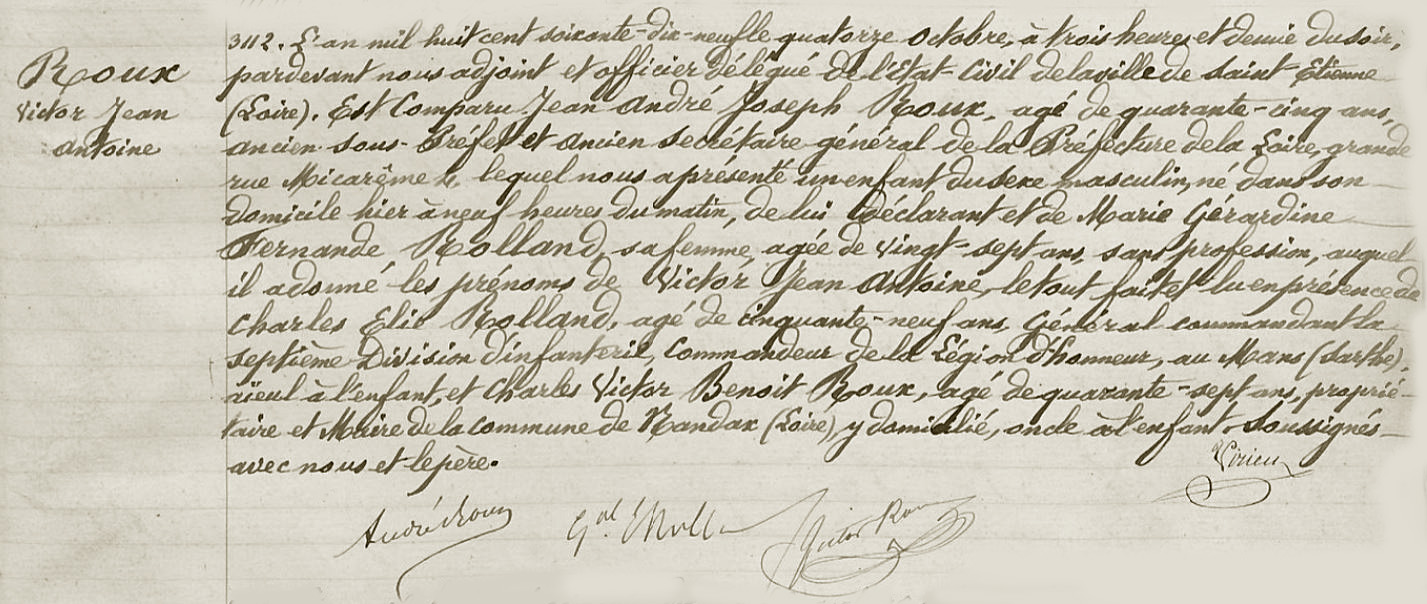 Roux
Victor Jean
Antoine
3112. L'an mil huit cent soixante-dix-neuf le quatorze Octobre, à trois heures et demie du soir,
pardevant nous adjoint et officier délégué de l'État-Civil de la ville de Saint-Etienne
(Loire). Est Comparu Jean André Joseph Roux, agé de quarante-cinq ans,
ancien sous-Préfet et ancien secrétaire général de la Préfecture de la Loire, grande
rue Micarême 4, lequel nous a présenté un enfant du sexe masculin, né dans son
domicile hier à neuf heures du matin, de lui déclarant et de Marie Gérardine
Fernande Rolland, sa femme, agée de vingt-sept ans, sans profession, auquel
il a donné les prénoms de Victor Jean Antoine, le tout fait et lu en présence de
Charles Elie Rolland, agé de cinquante-neuf ans, Général commandant la
septième Division d'infanterie, Commandeur de la Légion d'honneur, au Mans (Sarthe),
aïeul à l'enfant, et Charles Victor Benoit Roux, agé de quarante-sept ans, proprié-
taire et Maire de la commune de Nandax (Loire), y domicilié, oncle à l'enfant. Soussignés
avec nous et le père.
André Roux
Gal E Roll
Victor Roux